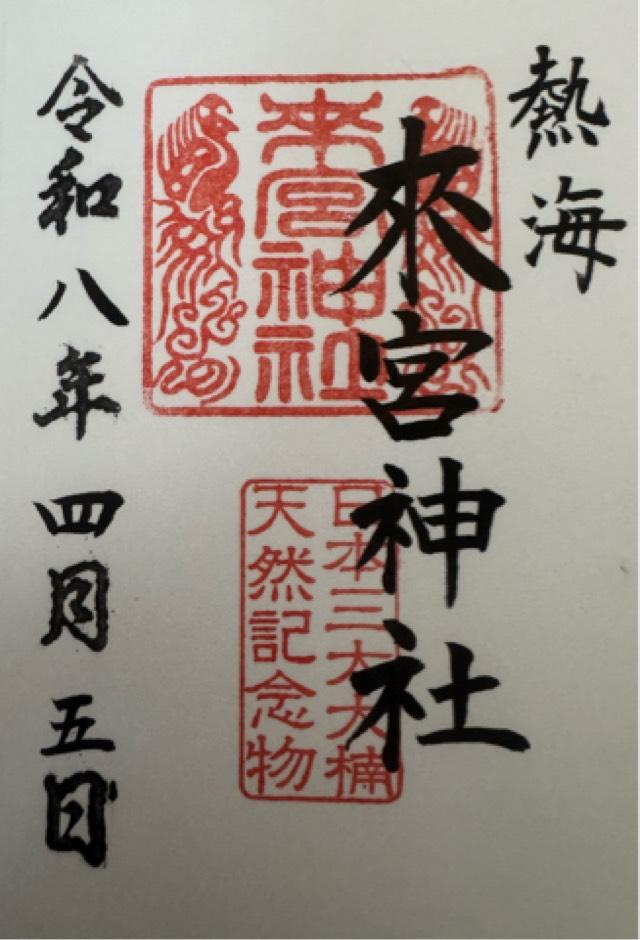 熱海
來宮神社
來宮神社
日本三大大楠
天然記念物
令和八年四月五日